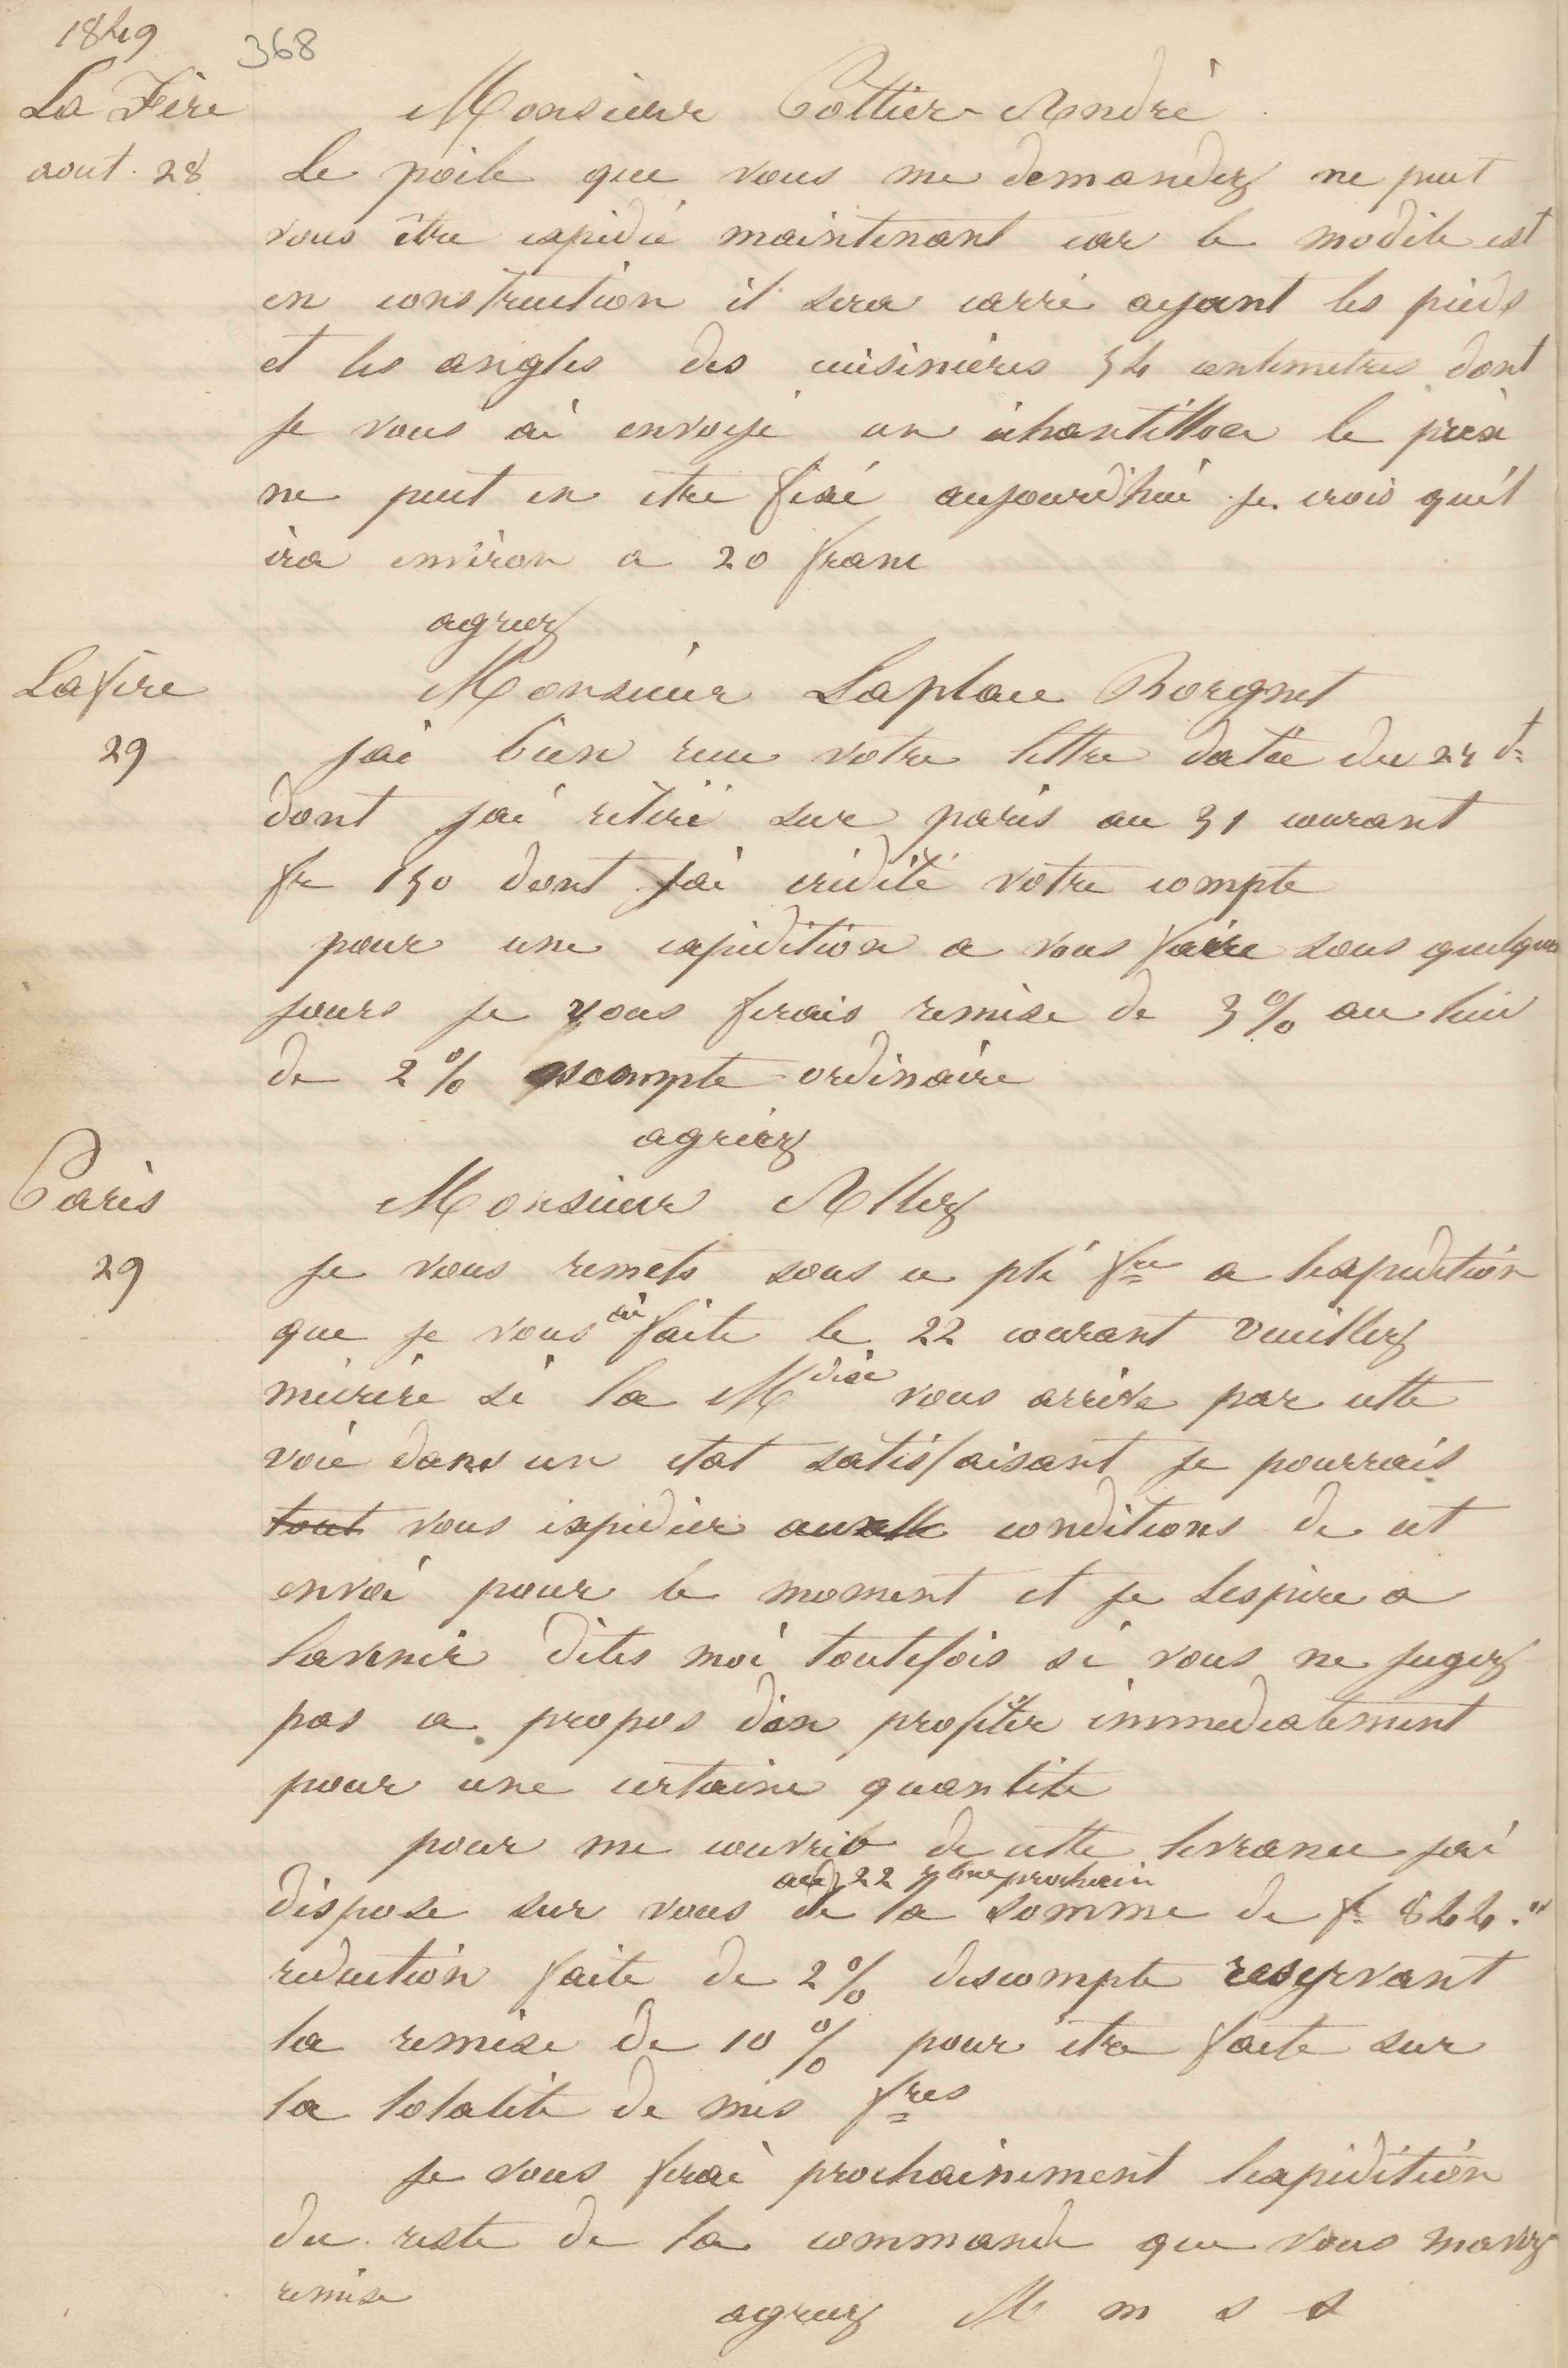 1849
368
La Fère
aout. 28
Monsieur Pottier-André
Le poile que vous me demandez ne peut
vous être expedié maintenant car le modèle est
en construction il sera carré ayant les pieds
et les angles des cuisinières 34 centimetres dont
je vous ai envoyé un échantillon le prix
ne peut en etre fixé aujourd'hui je crois qu'il
ira environ a 20 franc
agreez
Lafère
29
Monsieur Laplace Borgnet
jai bien recu votre lettre datée du 24 ct
dont jai retiré sur paris au 31 courant
fr 150 dont jai crédité votre compte
pour une expedition a vous faire sous quelques
jours je vous ferais remise de 3% au lieu
de 2% escompte ordinaire
agréez
Paris
29
Monsieur Allez
je vous remets sous ce pli fre a lexpedition
que je vous ai faite le 22 courant veuillez
mécrire si la Mdise vous arrive par cette
voie dans un etat satisfaisant je pourrais
tout vous expédier conditions de cet
envoi pour le moment et je lespere a
lavenir dites moi toutefois si vous ne jugez
pas a propos den profiter immediatement
pour une certaine quantite
pour me couvrir de cette livrance jai
au 22 7bre prochain
dispose sur vous de la somme de fr 844."
reduction faite de 2% descompte reservant
la remise de 10% pour etre faite sur
la totalité de mes fres
je vous ferai prochainement lexpédition
du reste de la commande que vous mavez
remise
agreez M m s s